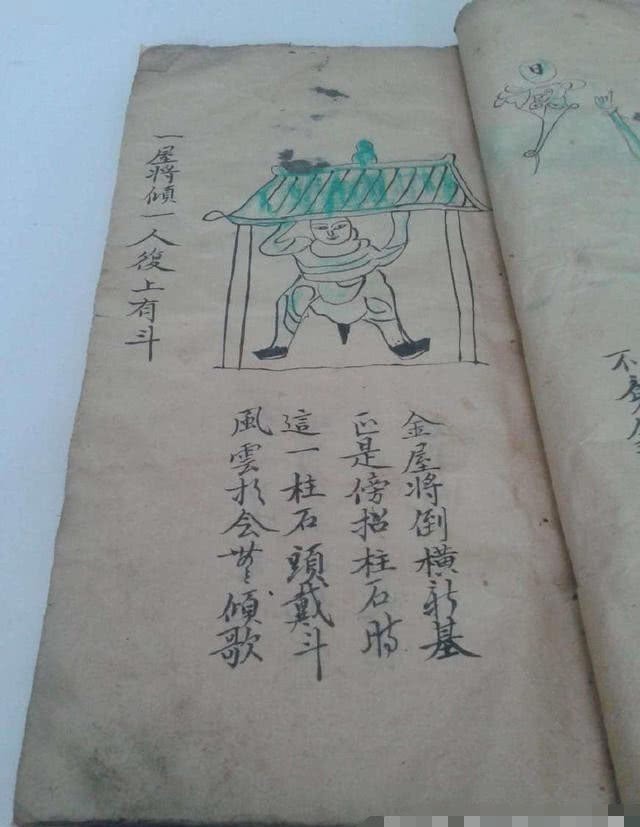 一屋將傾一人後上有斗
金屋將倒橫新基
正是傍招柱石時
這一柱石頭戴斗
風雲於会傾歌
日
不